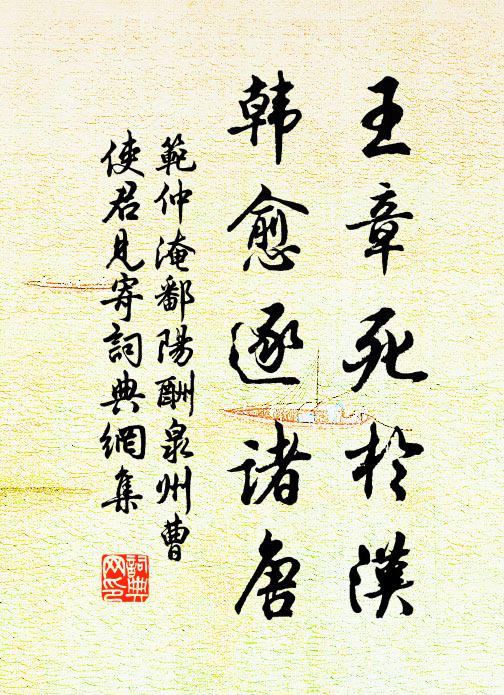 王章死於漢
韩愈逐诸唐
範仲淹鄱陽酬泉州曹
使君見寄詞典網集
詞典
网印